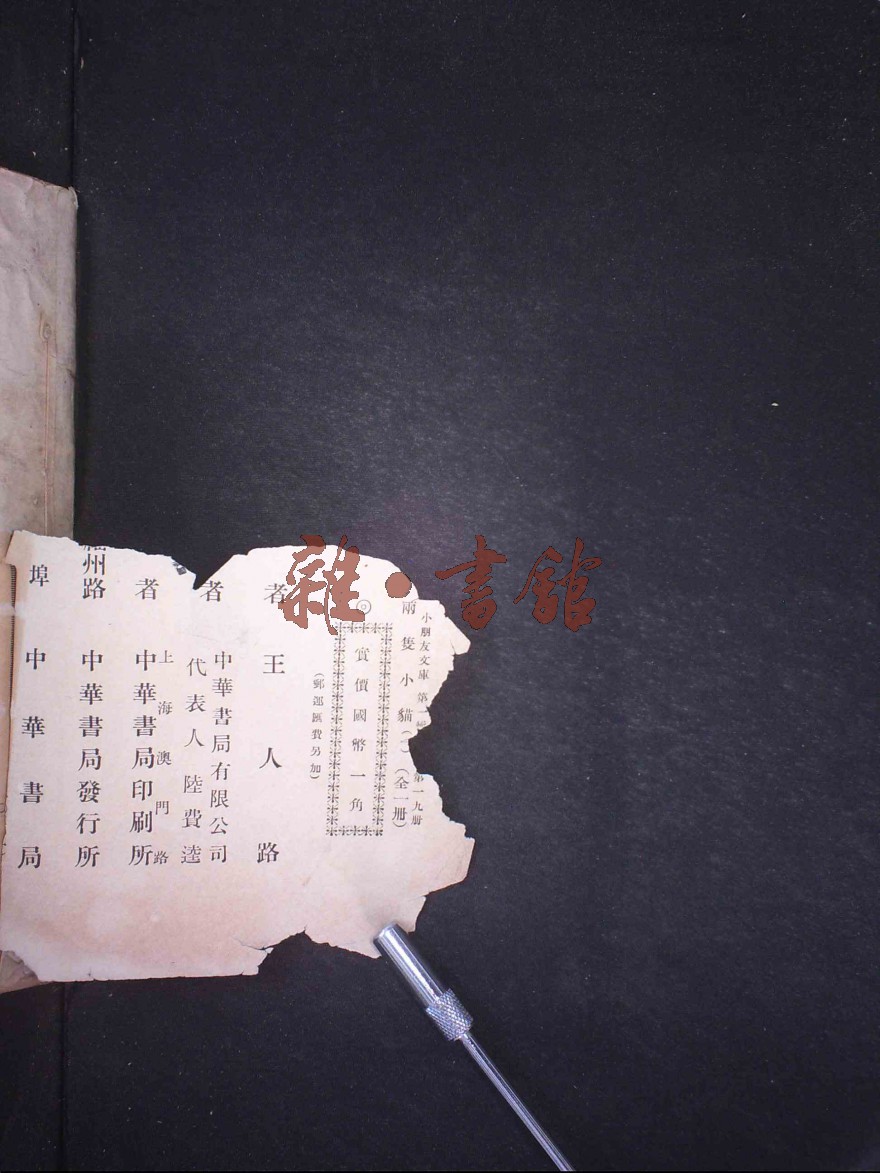 小朋友文庫 第一 第一九册
兩隻小貓(一)(全一册)
◎
實價國幣一角
(郵運匯費另加)
者 王人路
者 中華書局有限公司
代表人 陸費逵
上海澳門路
者 中華書局印刷所
福州路 中華書局發行所
埠 中華書局
雜·書館